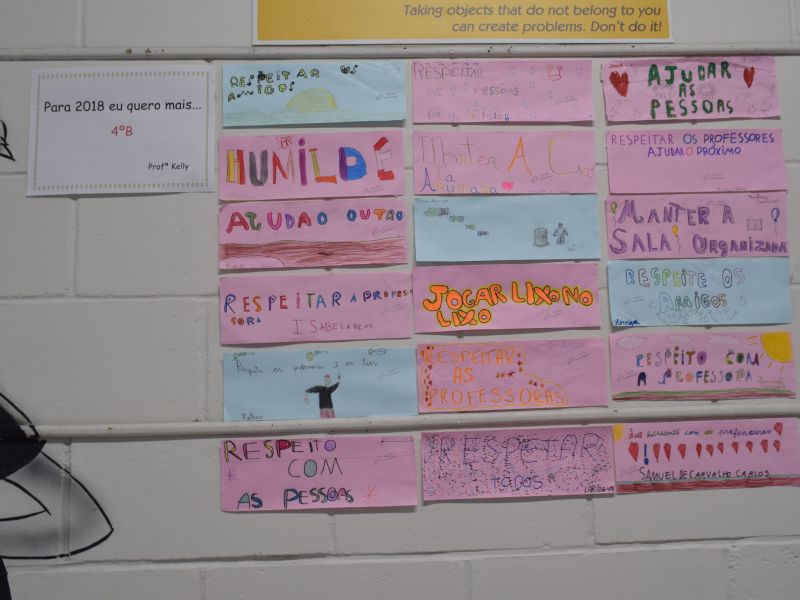 Taking objects that do not belong to you
can create problems. Don't do it!
Para 2018 eu quero mais...
4ºB
Profª Kelly
RESPEITAR OS
AMIGOS
RESPEITAR
AS PESSOAS
AJUDAR
AS
PESSOAS
SER
HUMILDE
Manter A
RESPEITAR OS PROFESSORES
AJUDAR O PRÓXIMO
AJUDA O OUTRO
MANTER A
SALA ORGANIZADA
RESPEITAR A PROFES
SORA
ISABELA
JOGAR LIXO NO
LIXO
RESPEITE OS
AMIGOS
RESPEITAR
AS
PROFESSORAS
RESPEITO COM
A PROFESSORA
RESPEITO
COM
AS PESSOAS
RESPEITAR
TODOS
SAMUEL DE CARVALHO CARLOS